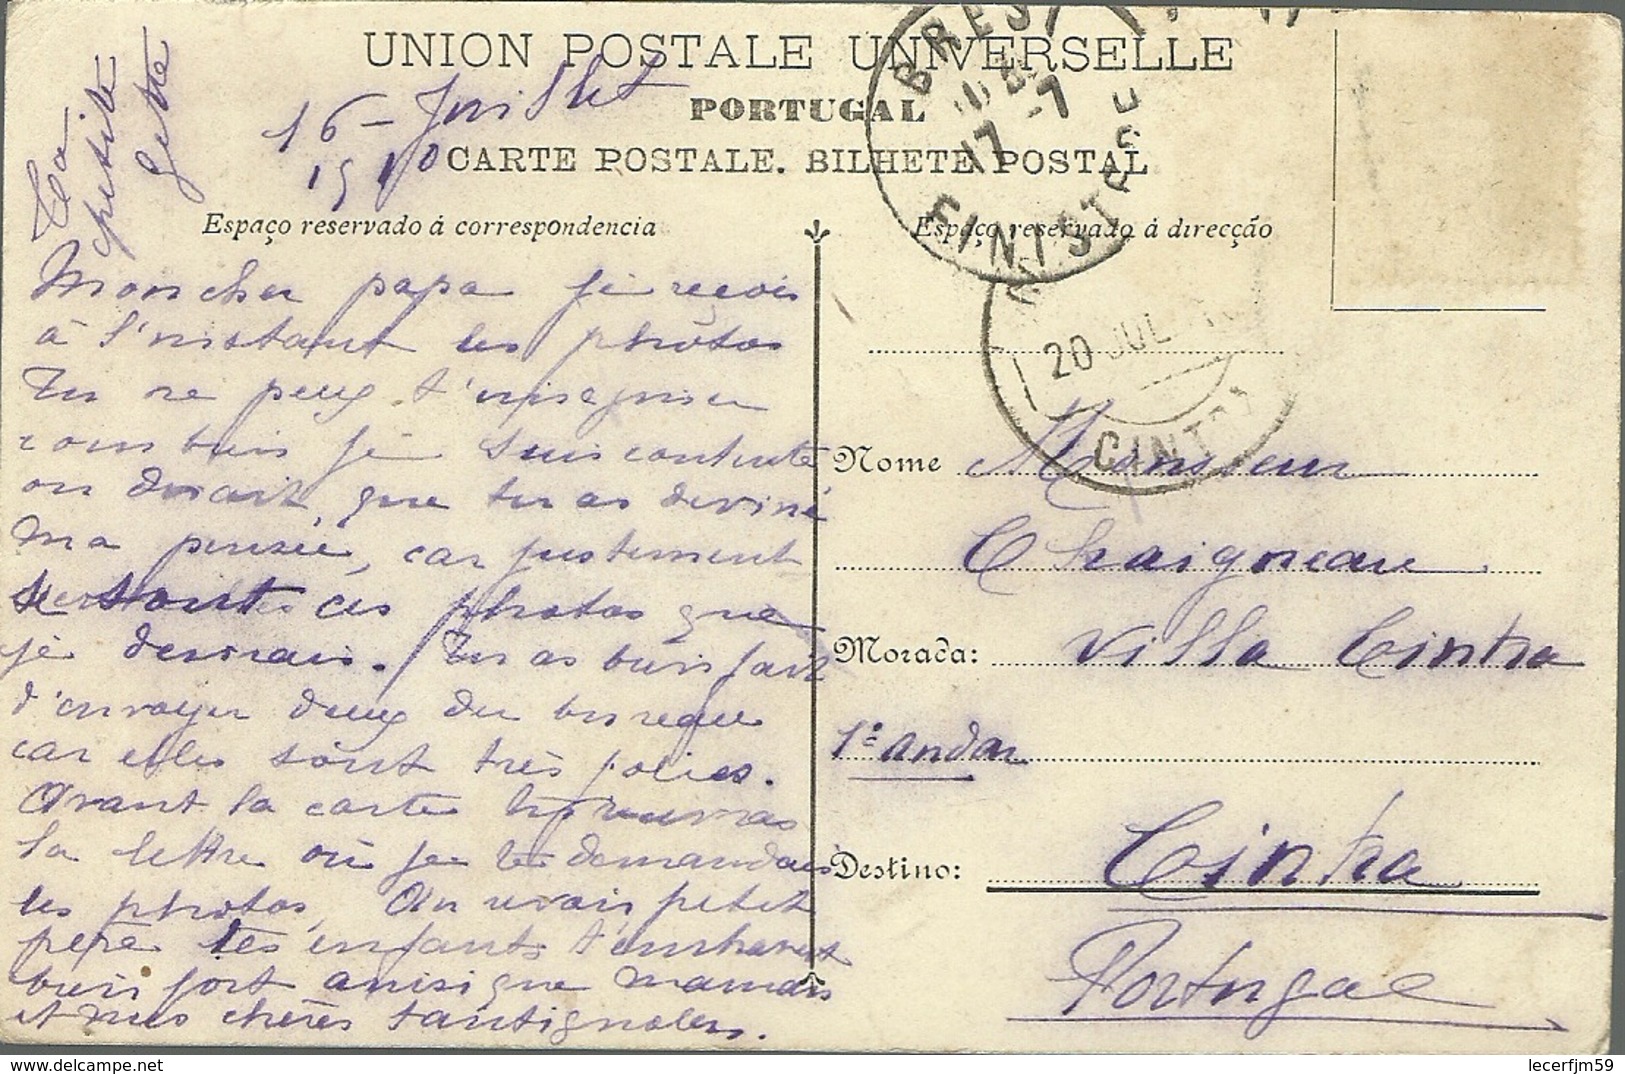 UNION POSTALE UNIVERSELLE
PORTUGAL
CARTE POSTALE. BILHETE POSTAL
16 - Juillet
1910
Ta
petite
Espaço reservado á correspondencia
Espaço reservado á direcção
BREST
17 -7
FINISTERE
20 JUL
CINTRA
Mon cher papa je reçois
à l'instant les photos
Tu ne peux t'imaginer
combien je suis contente
on dirait que tu as deviné
ma pensée, car justement
ces photos que
je desirais. Tu as bien fait
d'envoyer deux du
car elles sont très jolies.
Avant la carte tu
la lettre où je te demandais
les photos, Au petit
père tes enfants t'embrassent
bien fort ainsi que maman
et mes chères
Nome Monsieur
Chaigneau
Morada: Villa Cintra
1º andar
Destino: Cintra
Portugal
lecerfjm59